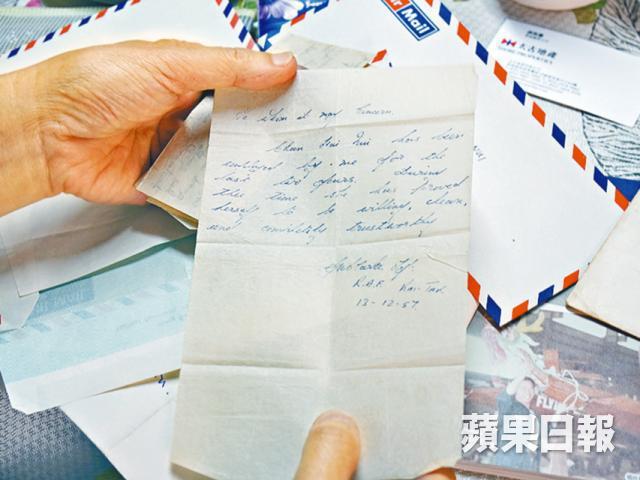 Air Mail
太古地產
SWIRE PROPERTIES
To Whom it may Concern.
Chan has been
employed by me for the
last two years. During
this time she has proved
herself to be willing, clean,
and completely trustworthy
Sgt.
R.A.F. Kai-Tak.
13-12-57.
蘋果日報